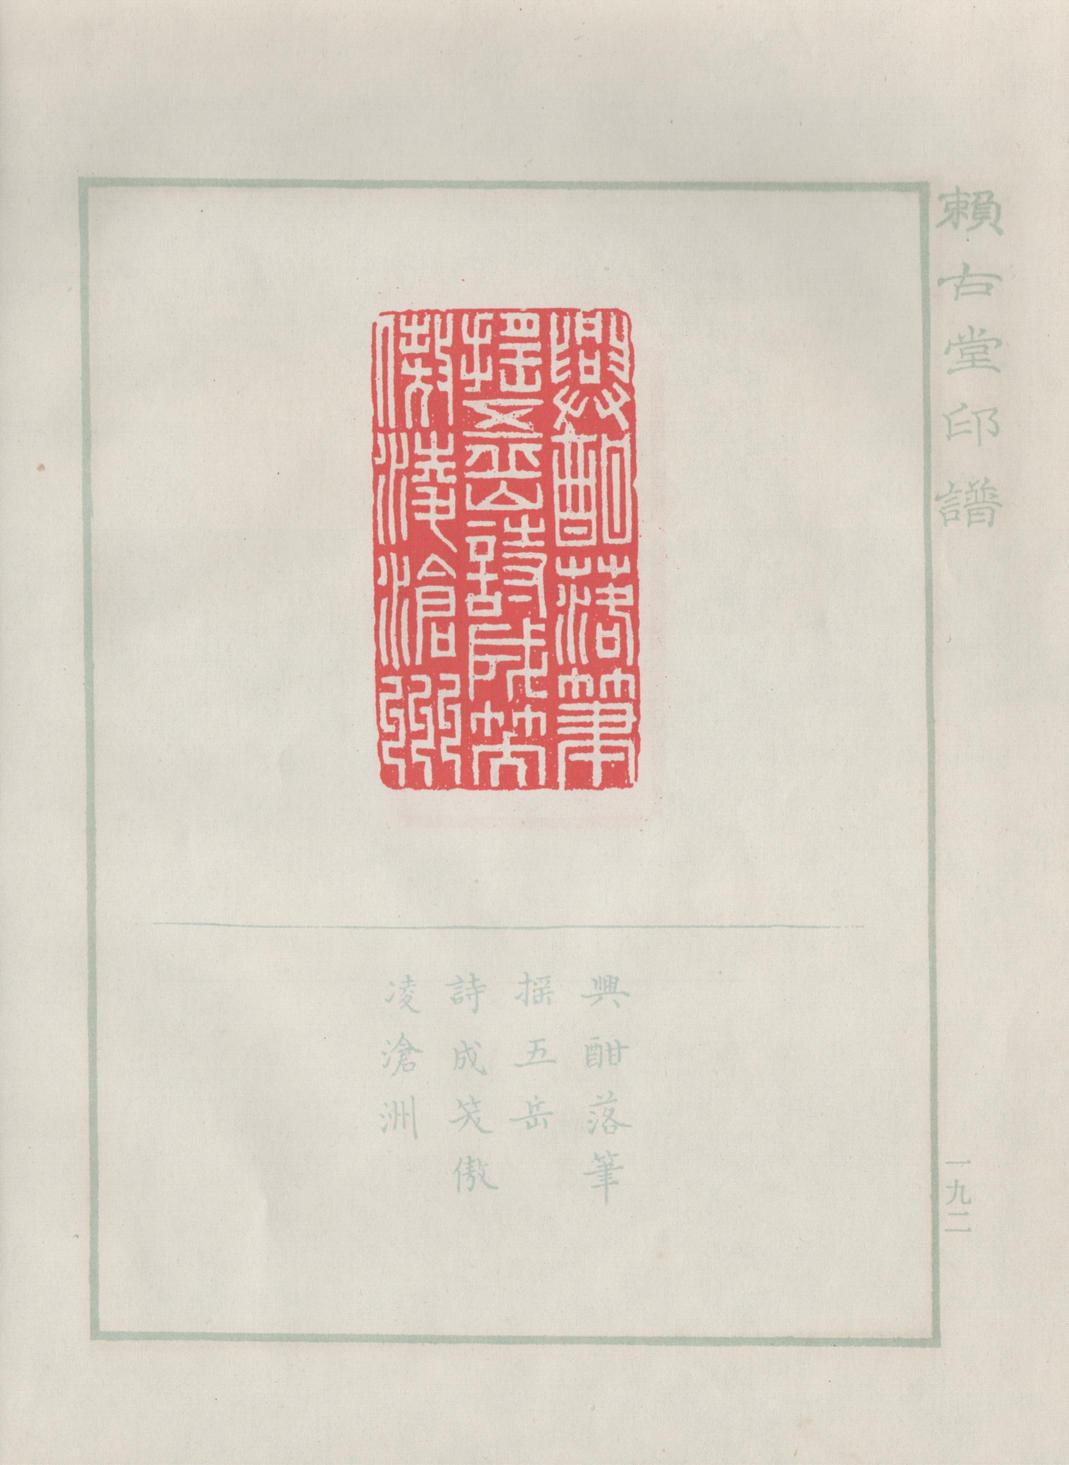 賴古堂印譜
興酣落筆
搖五岳詩成笑
傲凌滄洲
興酣落筆
搖五岳
詩成笑傲
凌滄洲
一九二